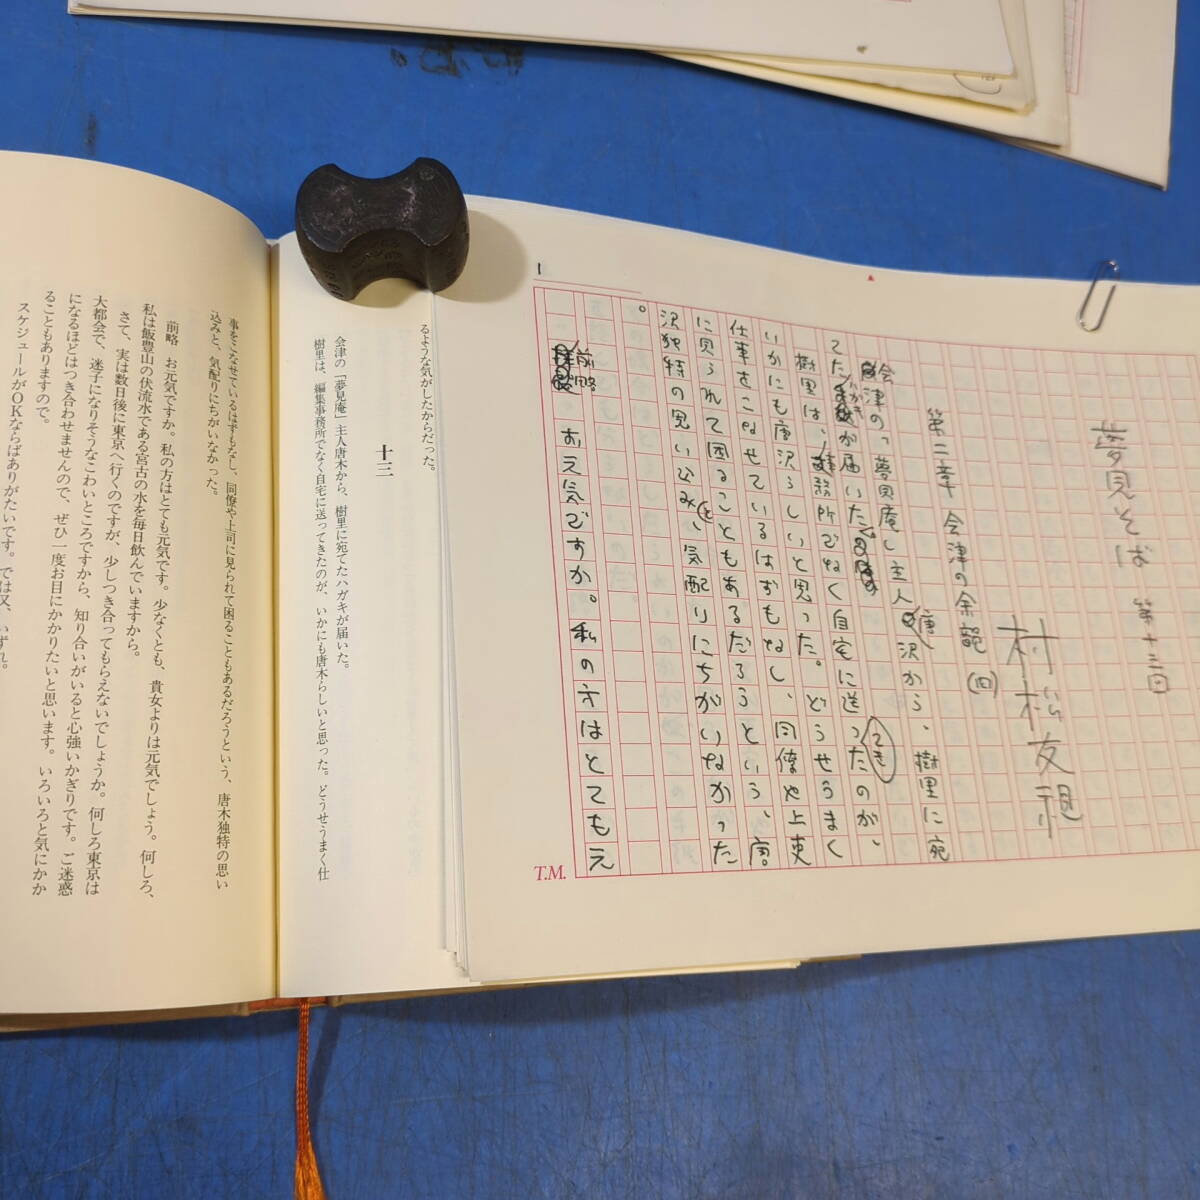 夢見そば 第十三回
村松友視
第二章 会津の余韻(四)
会津の「夢見庵」主人唐沢から、樹里に宛
てたハガキが届いた。
樹里は、事務所でなく自宅に送ってきたのが、
いかにも唐沢らしいと思った。どうせうまく
仕事をこなせているはずもなし、同僚や上吏
に見られて困ることもあるだろうという、唐
沢独特の思い込みと、気配りにちがいなかった
。
前略 お元気ですか。私の方はとても元
1
T.M.
るような気がしたからだった。
十三
会津の「夢見庵」主人唐木から、樹里に宛てたハガキが届いた。
樹里は、編集事務所でなく自宅に送ってきたのが、いかにも唐木らしいと思った。どうせうまく仕
事をこなせているはずもなし、同僚や上司に見られて困ることもあるだろうという、唐木独特の思い
込みと、気配りにちがいなかった。
前略 お元気ですか。私の方はとても元気です。少なくとも、貴女よりは元気でしょう。何しろ、
私は飯豊山の伏流水である宮古の水を毎日飲んでいますから。
さて、実は数日後に東京へ行くのですが、少しつき合ってもらえないでしょうか。何しろ東京は
大都会で、迷子になりそうなこわいところですから、知り合いがいると心強いかぎりです。ご迷惑
になるほどはつき合わせませんので、ぜひ一度お目にかかりたいと思います。いろいろと気にかか
ることもありますので。
スケジュールがOKならばありがたいです。では又、いずれ。